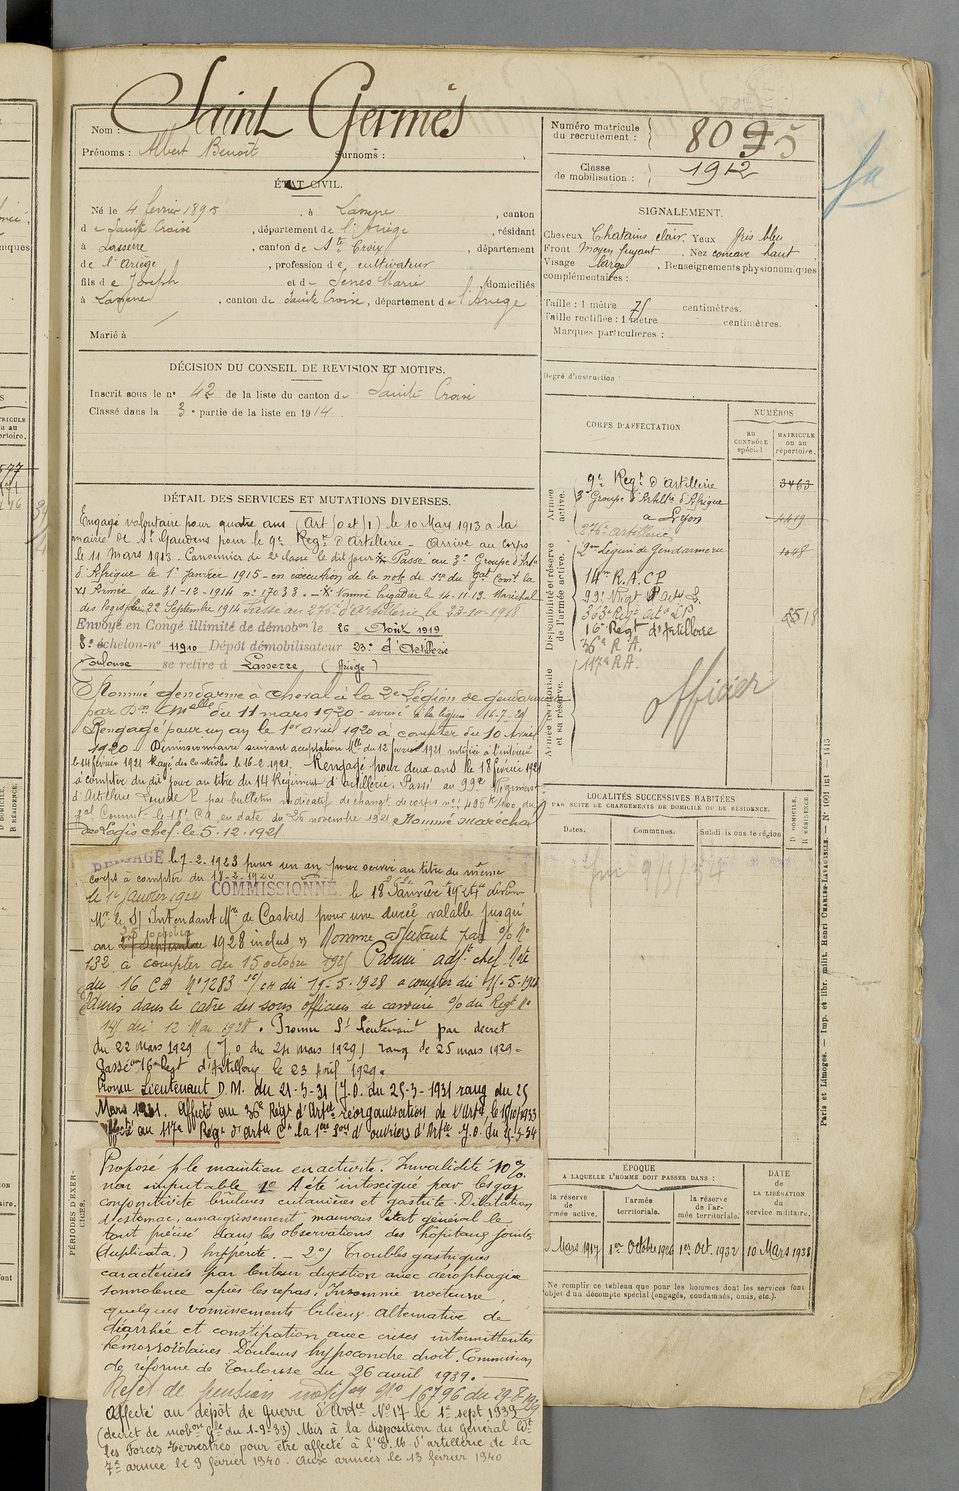 Nom : Saint Germès
Prénoms : Albert Benoît Surnoms :
Numéro matricule du recrutement : 8095
Classe de mobilisation : 1912
ÉTAT CIVIL.
Né le 4 février 1893, à Lasserre, canton
de Sainte Croix, département de l'Ariège, résidant
à Lasserre, canton de Ste Croix, département
de l'Ariège, profession de cultivateur
fils de Joseph et de Marie domiciliés
à Lasserre, canton de Sainte Croix, département de l'Ariège
Marié à
SIGNALEMENT.
Cheveux Chatains clair. Yeux gris bleu
Front Moyen fuyant. Nez concave haut
Visage large. Renseignements physionomiques
complémentaires :
Taille : 1 mètre 75 centimètres.
Taille rectifiée : 1 mètre centimètres.
Marques particulières :
Degré d'instruction :
DÉCISION DU CONSEIL DE REVISION ET MOTIFS.
Inscrit sous le n° 42 de la liste du canton de Sainte Croix
Classé dans la 3e partie de la liste en 1914
DÉTAIL DES SERVICES ET MUTATIONS DIVERSES.
Engagé volontaire pour quatre ans (Art 50 et 51) le 10 Mars 1913 à la
mairie de St Gaudens pour le 9e Regt d'Artillerie - Arrivé au corps
le 11 mars 1913. Canonnier de 2e classe le dit jour. Passé au 3e Groupe d'Arte
d'Afrique le 1er janvier 1915 - en exécution de la note de
Armée du 31-12-1914 n° 17033. - Nommé brigadier le 14-11-13. Maréchal
des logis le 22 Septembre 1914 Passé au 276e d'artillerie le 23-10-1918
Envoyé en Congé illimité de démobon le 26 Août 1919
8e échelon - n° 11910 Dépôt démobilisateur 23e d'Artillerie
Toulouse se retire à Lasserre (Ariège)
Nommé gendarme à cheval à la 2e Légion de gendarmerie
par Don Melle du 11 mars 1920 - arrivé à la légion 16-7-20
Rengagé pour un an le 1er avril 1920 à compter du 10 Avril
1920 Démissionnaire suivant acceptation Mlle du 12 février 1921 notifiée à l'intéressé
le 14 février 1921 Rayé des contrôles le 16-2-1921. Rengagé pour deux ans le 18 février 1921
à compter du dit jour au titre du 14 Régiment d'artillerie. Passé au 99e Régiment
d'Artillerie Lourde par bulletin indicatif de changt de corps n° 495 du
Gal Commt le 18e CA en date du 26 novembre 1921 Nommé maréchal
des Logis chef le 5-12-1921
RENGAGÉ le 7-2-1923 pour un an pour servir au titre du même
corps à compter du 18-2-1923
COMMISSIONNÉ le 18 Janvier 1924 devant
Mr le S/ Intendant Mre de Castres pour une durée valable jusqu'
au 1928 inclus Nommé adjudant par O/ N°
132 à compter du 15 octobre 1925 Promu adjt chef Note
du 16 CA N° 1283 du 19-5-1928 à compter du -5-1928
Admis dans le cadre des sous officiers de carrière O/ du Regt N°
141 du 12 Mai 1928. Promu St Lieutenant par décret
du 22 mars 1929 (J.O du 24 mars 1929) rang de 25 mars 1929 -
Passé au 16e Regt d'Artillerie le 23 Avril 1929.
Promu Lieutenant D.M. du 21-3-31 (J.O. du 25-3-1931 rang du 25
Mars 1931. Affecté au 36e Régt d'Arte réorganisation de l'Arte, le 15/10/1933
affecté au 117e Régt d'Arte Cdt la 1ère Son d'ouvriers d'Arte J.O. du
Proposé p/ le maintien en activité. Invalidité 10%
non imputable 1° A été intoxiqué par les gaz
conjonctivite brûlures cutanées et gastrite. Dilatation
d'estomac, amaigrissement mauvais état général le
tout précisé dans les observations des hôpitaux jointes
(duplicata.) hyperite. - 2°) Troubles gastriques
caractérisés par lenteur digestion avec aérophagie
somnolence après les repas. Insomnie nocturne,
quelques vomissements bilieux alternative de
diarrhée et constipation avec crises intermittentes
hémorroïdaires. Douleurs hypocondre droit. Commission
de réforme de Toulouse du 26 avril 1939.
Rejet de pension notifon N° 16796 du 29.8.1939
Affecté au dépôt de Guerre d'Arte N° 17 le 1er sept 1939
(décret de mobon gle du 1-9-39) Mis à la disposition du Général Cdt
les Forces Terrestres pour être affecté à l'E.M. d'artillerie de la
7e armée le 9 février 1940. Aux armées le 13 février 1940
CORPS D'AFFECTATION.
NUMÉROS
au CONTRÔLE spécial.
MATRICULE ou au répertoire.
Armée active.
9e Regt d'Artillerie 3463
3e Groupe d'Artilie d'Afrique
à Lyon 4419
276e artillerie
Disponibilité et réserve de l'armée active.
2me Légion de Gendarmerie 1048
14me R.A.C.P.
99e Régt Art L.
363e Régt Art L.P.
16e Régt d'Artillerie
36e R.A.
117e R.A.
Armée territoriale et sa réserve.
officier
LOCALITÉS SUCCESSIVES HABITÉES
PAR SUITE DE CHANGEMENTS DE DOMICILE OU DE RÉSIDENCE.
Dates. Communes. Subdivisions de région D DOMICILE. R RÉSIDENCE
ÉPOQUE
A LAQUELLE L'HOMME DOIT PASSER DANS :
la réserve de l'armée active.
l'armée territoriale.
la réserve de l'armée territoriale.
DATE de la LIBÉRATION du service militaire.
Mars 1917 1er Octobre 1926 1er Oct. 1932 10 Mars 1938
Ne remplir ce tableau que pour les hommes dont les services font
l'objet d'un décompte spécial (engagés, condamnés, omis, etc.).
PÉRIODES D'EXERCICES.
Paris et Limoges. — Imp. et libr. milit. Henri CHARLES-LAVAUZELLE.